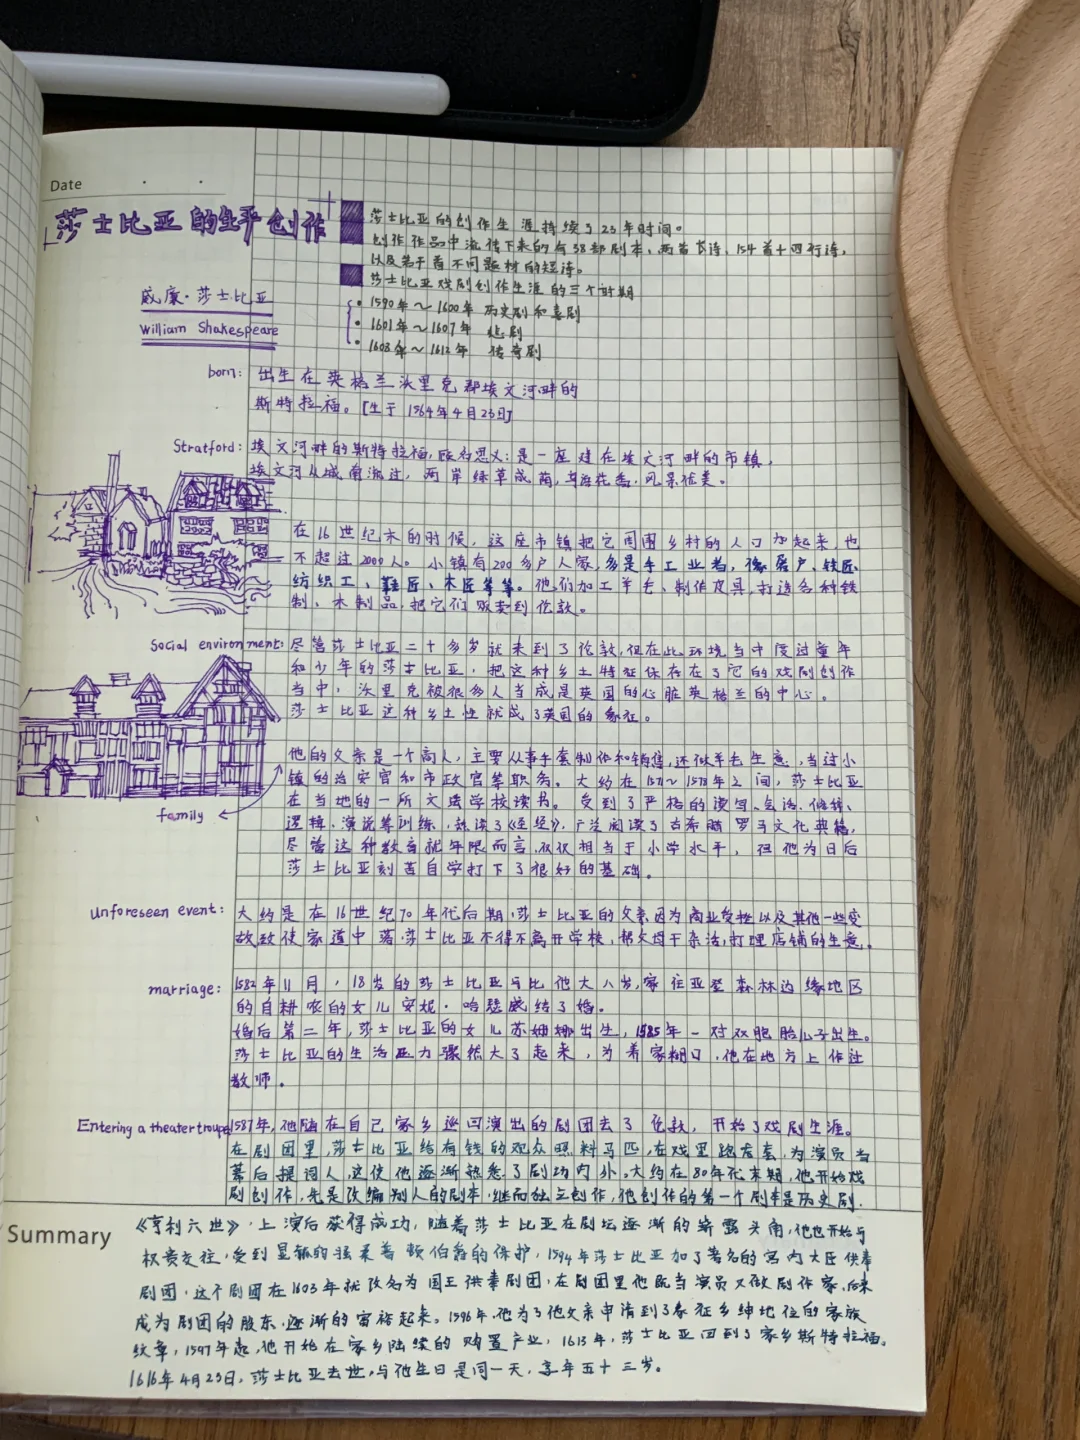 Date
莎士比亚的生平创作
莎士比亚的创作生涯持续了23年时间。
创作作品中流传下来的有38部剧本、两首长诗、154首十四行诗,
以及若干首不同题材的短诗。
莎士比亚戏剧创作生涯的三个时期
威廉·莎士比亚
William Shakespeare
· 1590年～1600年 历史剧和喜剧
· 1601年～1607年 悲剧
· 1608年～1612年 传奇剧
born: 出生在英格兰沃里克郡埃文河畔的
斯特拉福。[生于1564年4月23日]
Stratford: 埃文河畔的斯特拉福,顾名思义:是一座建在埃文河畔的市镇,
埃文河从城南流过,两岸绿草成荫,鸟语花香,风景优美。
在16世纪末的时候,这座市镇把它周围乡村的人口加起来,也
不超过2000人。小镇有200多户人家,多是手工业者,像屠户、铁匠、
纺织工、鞋匠、木匠等等。他们加工羊毛、制作皮具,打造各种铁
制、木制品,把它们贩卖到伦敦。
Social environment: 尽管莎士比亚二十多岁就来到了伦敦,但在此环境当中度过童年
和少年的莎士比亚,把这种乡土特征保存在了它的戏剧创作
当中,沃里克被很多人当成是英国的心脏英格兰的中心。
莎士比亚这种乡土性就成了英国的象征。
他的父亲是一个商人,主要从事手套制作和销售,还做羊毛生意,当过小
镇的治安官和市政官等职务。大约在1571～1578年之间,莎士比亚
在当地的一所文法学校读书。受到了严格的读写、会话、修辞、
逻辑、演说等训练,熟读了《圣经》,广泛阅读了古希腊罗马文化典籍,
family
尽管这种教育就年限而言,仅仅相当于小学水平,但他为日后
莎士比亚刻苦自学打下了很好的基础。
Unforeseen event: 大约是在16世纪70年代后期,莎士比亚的父亲因为商业受挫以及其他一些变
故致使家道中落,莎士比亚不得不离开学校,帮父母干杂活,打理店铺的生意。
marriage: 1582年11月,18岁的莎士比亚与比他大八岁,家住亚登森林边缘地区
的自耕农的女儿安妮·哈瑟威结了婚。
婚后第二年,莎士比亚的女儿苏姗娜出生,1585年一对双胞胎儿子出生。
莎士比亚的生活压力骤然大了起来,为着家糊口,他在地方上作过
教师。
Entering a theater troupe 1587年,他随在自己家乡巡回演出的剧团去了伦敦,开始了戏剧生涯。
在剧团里,莎士比亚给有钱的观众照料马匹,在戏里跑龙套,为演员当
幕后提词人,这使他逐渐熟悉了剧场内外。大约在80年代末期,他开始戏
剧创作,先是改编别人的剧本,继而独立创作,他创作的第一个剧本是历史剧.
Summary
《亨利六世》,上演后获得成功,随着莎士比亚在剧坛逐渐的崭露头角,他也开始与
权贵交往,受到显赫的扫桑普顿伯爵的保护,1594年莎士比亚加了著名的宫内大臣供奉
剧团,这个剧团在1603年就改名为国王供奉剧团,在剧团里他既当演员又做剧作家,后来
成为剧团的股东,逐渐的富裕起来。1596年,他为了他父亲申请到了象征乡绅地位的家族
纹章,1597年起,他开始在家乡陆续的购置产业,1613年,莎士比亚回到了家乡斯特拉福。
1616年4月23日,莎士比亚去世,与他生日是同一天,享年五十三岁。